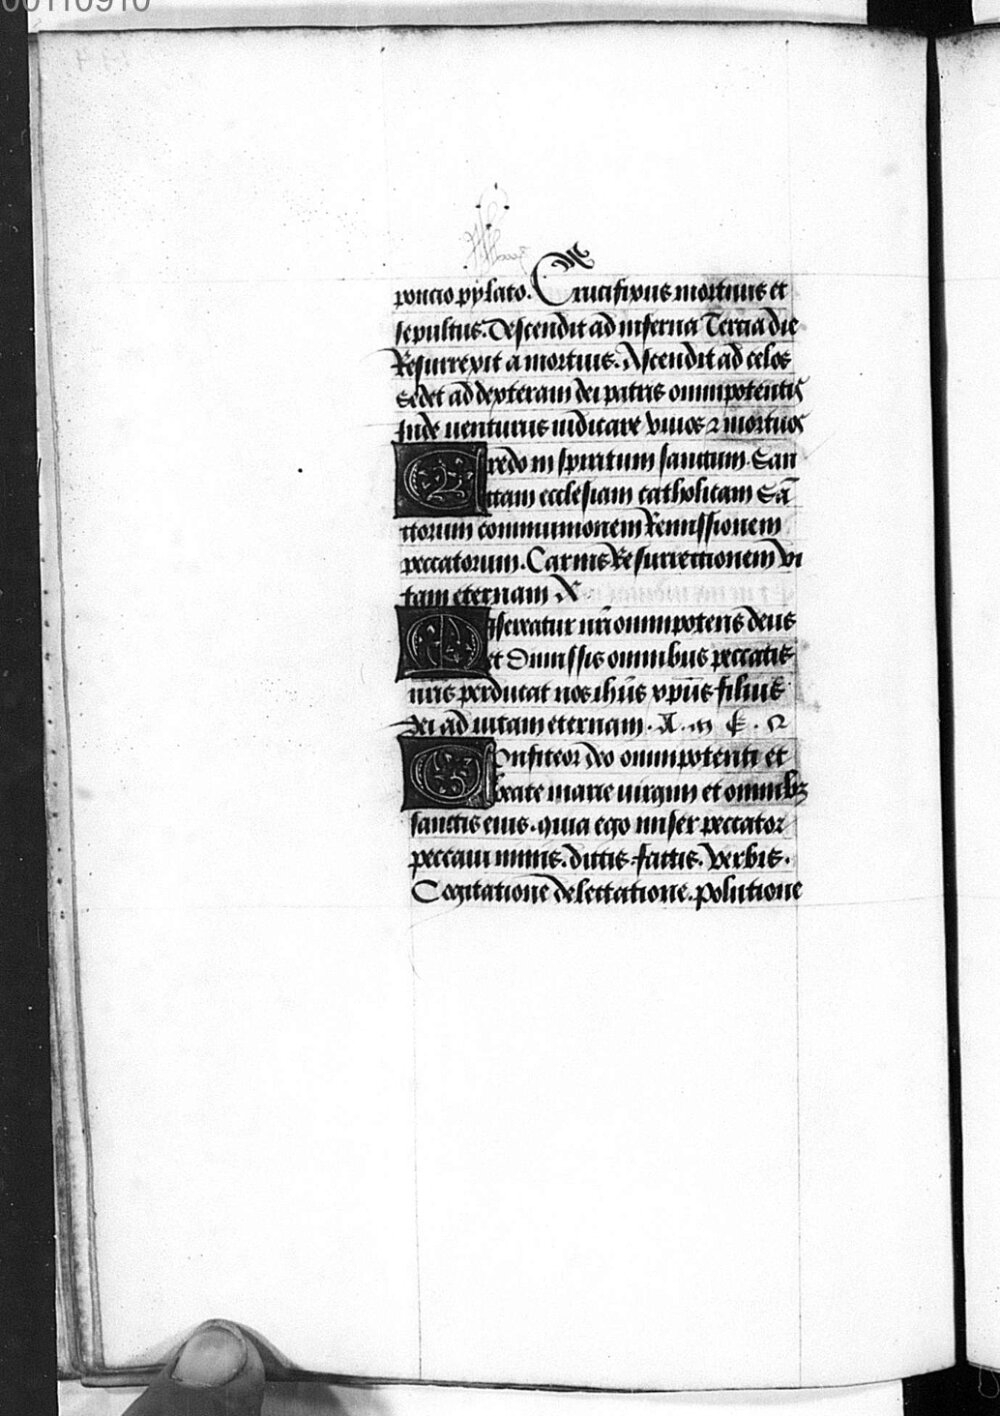 00110910
poncio pylato. Crucifixus mortuus et
sepultus. Descendit ad inferna Tercia die
Resurrexit a mortuis. Ascendit ad celos
Sedet ad dexteram dei patris omnipotentis
Inde uenturus iudicare viuos ⁊ mortuos
Credo in spiritum sanctum. San
ctam ecclesiam catholicam Sā
ctorum communionem Remissionem
peccatorum. Carnis Resurrectionem vi
tam eternam
Misereatur nr̄i omnipotens deus
et Dimissis omnibus peccatis
nr̄is perducat nos ihūs xp̄us filius
dei ad uitam eternam. A. m E. N
Confiteor deo omnipotenti et
beate marie uirgini et omnibꝫ
sanctis eius. quia ego miser peccator
peccaui nimis. dictis. factis. verbis.
Cogitatione delectatione. polutione